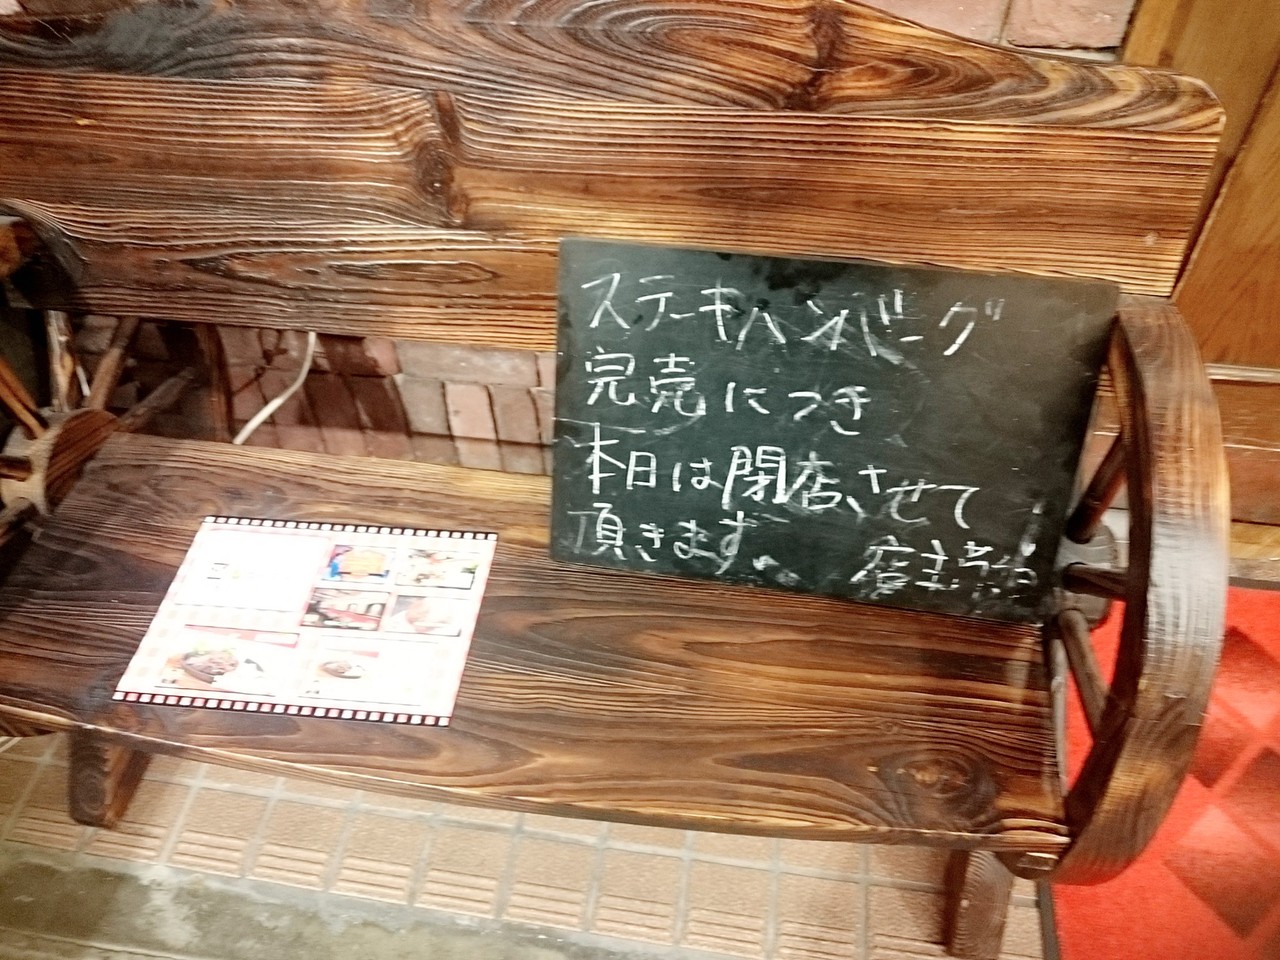 ステーキハンバーグ
完売につき
本日は閉店させて
頂きます。
店主